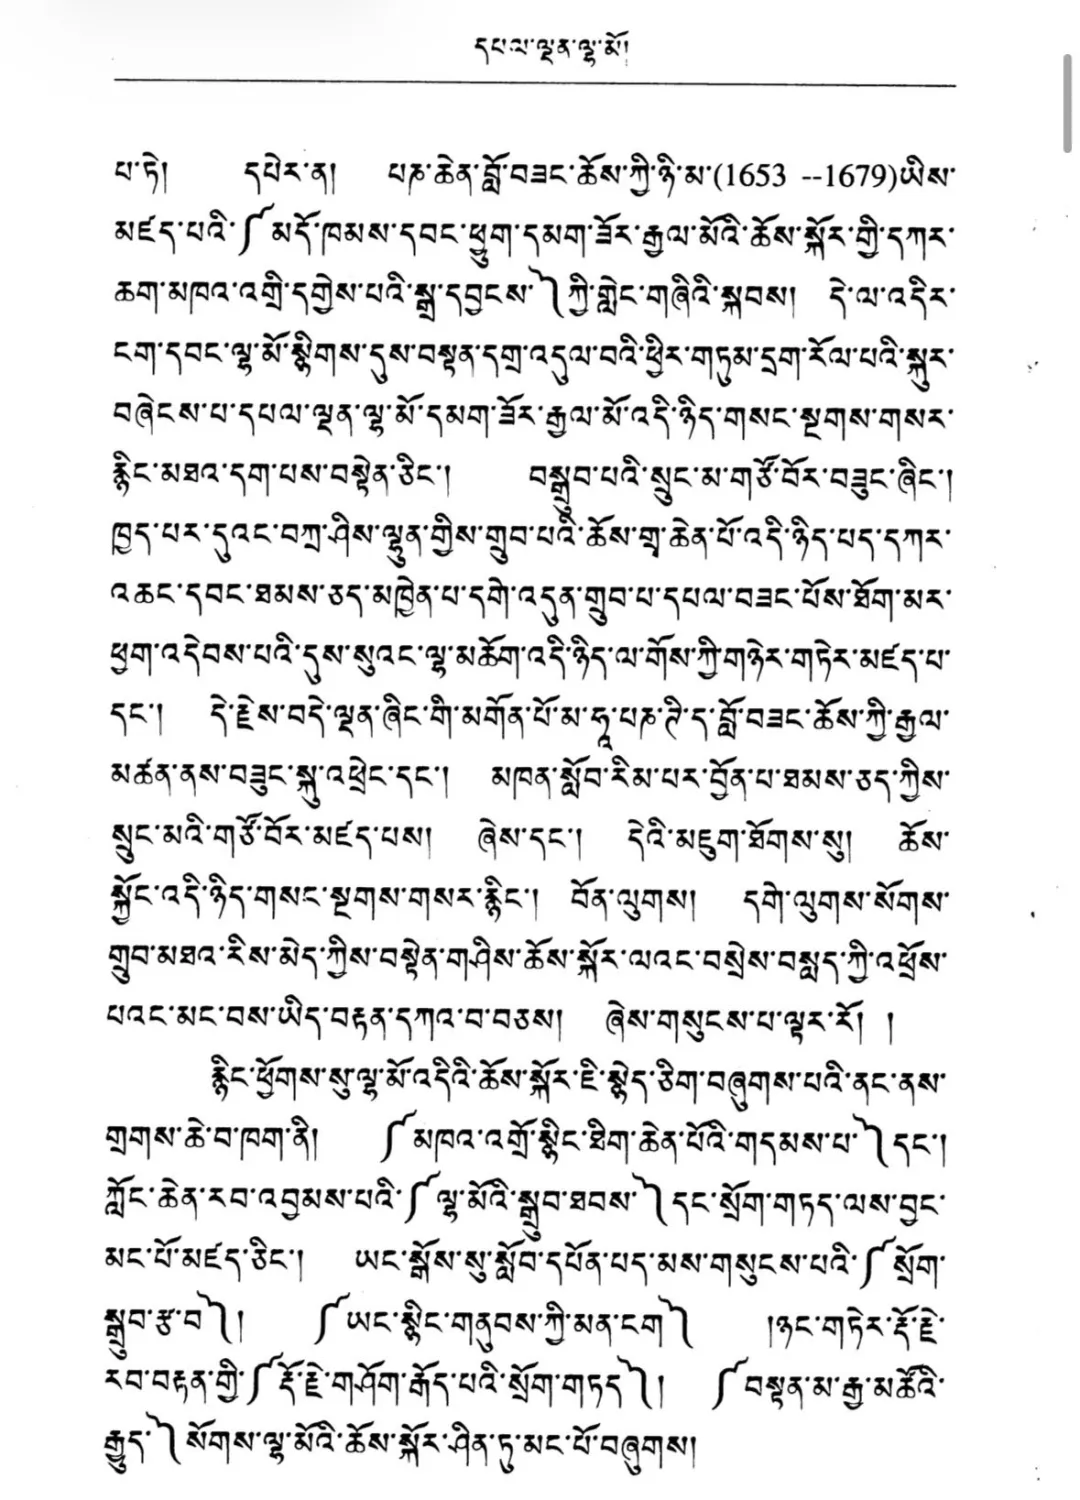 དཔལ་ལྡན་ལྷ་མོ།
པ་ཏེ། དཔེར་ན། པཎ་ཆེན་བློ་བཟང་ཆོས་ཀྱི་ཉི་མ་(1653 --1679)ཡིས་
མཛད་པའི་༼ མདོ་ཁམས་དབང་ཕྱུག་དམག་ཟོར་རྒྱལ་མོའི་ཆོས་སྐོར་གྱི་དཀར་
ཆག་མཁའ་འགྲི་དགྱེས་པའི་སྒྲ་དབྱངས་༽ཀྱི་གླེང་གཞིའི་སྐབས། དེ་ལ་འདིར་
ངག་དབང་ལྷ་མོ་སྙིགས་དུས་བསྟན་དགྲ་འདུལ་བའི་ཕྱིར་གཏུམ་དྲག་རོལ་པའི་སྐུར་
བཞེངས་པ་དཔལ་ལྡན་ལྷ་མོ་དམག་ཟོར་རྒྱལ་མོ་འདི་ཉིད་གསང་སྔགས་གསར་
རྙིང་མཐའ་དག་པས་བསྟེན་ཅིང་། བསྒྲུབ་པའི་སྲུང་མ་གཙོ་བོར་བཟུང་ཞིང་།
ཁྱད་པར་དུའང་བཀྲ་ཤིས་ལྷུན་གྱིས་གྲུབ་པའི་ཆོས་གྲྭ་ཆེན་པོ་འདི་ཉིད་པད་དཀར་
འཆང་དབང་ཐམས་ཅད་མཁྱེན་པ་དགེ་འདུན་གྲུབ་པ་དཔལ་བཟང་པོས་ཐོག་མར་
ཕྱག་འདེབས་པའི་དུས་སུའང་ལྷ་མཆོག་འདི་ཉིད་ལ་གོས་ཀྱི་གཉེར་གཏེར་མཛད་པ་
དང་། དེ་རྗེས་བདེ་ལྡན་ཞིང་གི་མགོན་པོ་མ་ཧཱ་པཎ་ཊི་ད་བློ་བཟང་ཆོས་ཀྱི་རྒྱལ་
མཚན་ནས་བཟུང་སྐུ་འཕྲེང་དང་། མཁན་སློབ་རིམ་པར་བྱོན་པ་ཐམས་ཅད་ཀྱིས་
སྲུང་མའི་གཙོ་བོར་མཛད་པས། ཞེས་དང་། དེའི་མཇུག་ཐོགས་སུ། ཆོས་
སྐྱོང་འདི་ཉིད་གསང་སྔགས་གསར་རྙིང་། བོན་ལུགས། དགེ་ལུགས་སོགས་
གྲུབ་མཐའ་རིས་མེད་ཀྱིས་བསྟེན་གཤིས་ཆོས་སྐོར་ལའང་བསྲེས་བསླད་ཀྱི་འཕྲོས་
པའང་མང་བས་ཡིད་བརྟན་དཀའ་བ་བཅས། ཞེས་གསུངས་པ་ལྟར་རོ། །
རྙིང་ཕྱོགས་སུ་ལྷ་མོ་འདིའི་ཆོས་སྐོར་ཇི་སྙེད་ཅིག་བཞུགས་པའི་ནང་ནས་
གྲགས་ཆེ་བ་ཁག་ནི། ༼ མཁའ་འགྲོ་སྙིང་ཐིག་ཆེན་པོའི་གདམས་པ་༽དང་།
ཀློང་ཆེན་རབ་འབྱམས་པའི་༼ ལྷ་མོའི་སྒྲུབ་ཐབས་༽དང་སྲོག་གཏད་ལས་བྱང་
མང་པོ་མཛད་ཅིང་། ཡང་སྒོས་སུ་སློབ་དཔོན་པད་མས་གསུངས་པའི་༼ སྲོག་
སྒྲུབ་རྩ་བ༽། ༼ ཡང་སྙིང་གནུབས་ཀྱི་མན་ངག༽ །ཉང་གཏེར་རྡོ་རྗེ་
རབ་བརྟན་གྱི་༼ རྡོ་རྗེ་གཤོག་རྒོད་པའི་སྲོག་གཏད༽། ༼ བསྟན་མ་རྒྱ་མཚོའི་
རྒྱུད་༽སོགས་ལྷ་མོའི་ཆོས་སྐོར་ཤིན་ཏུ་མང་པོ་བཞུགས།